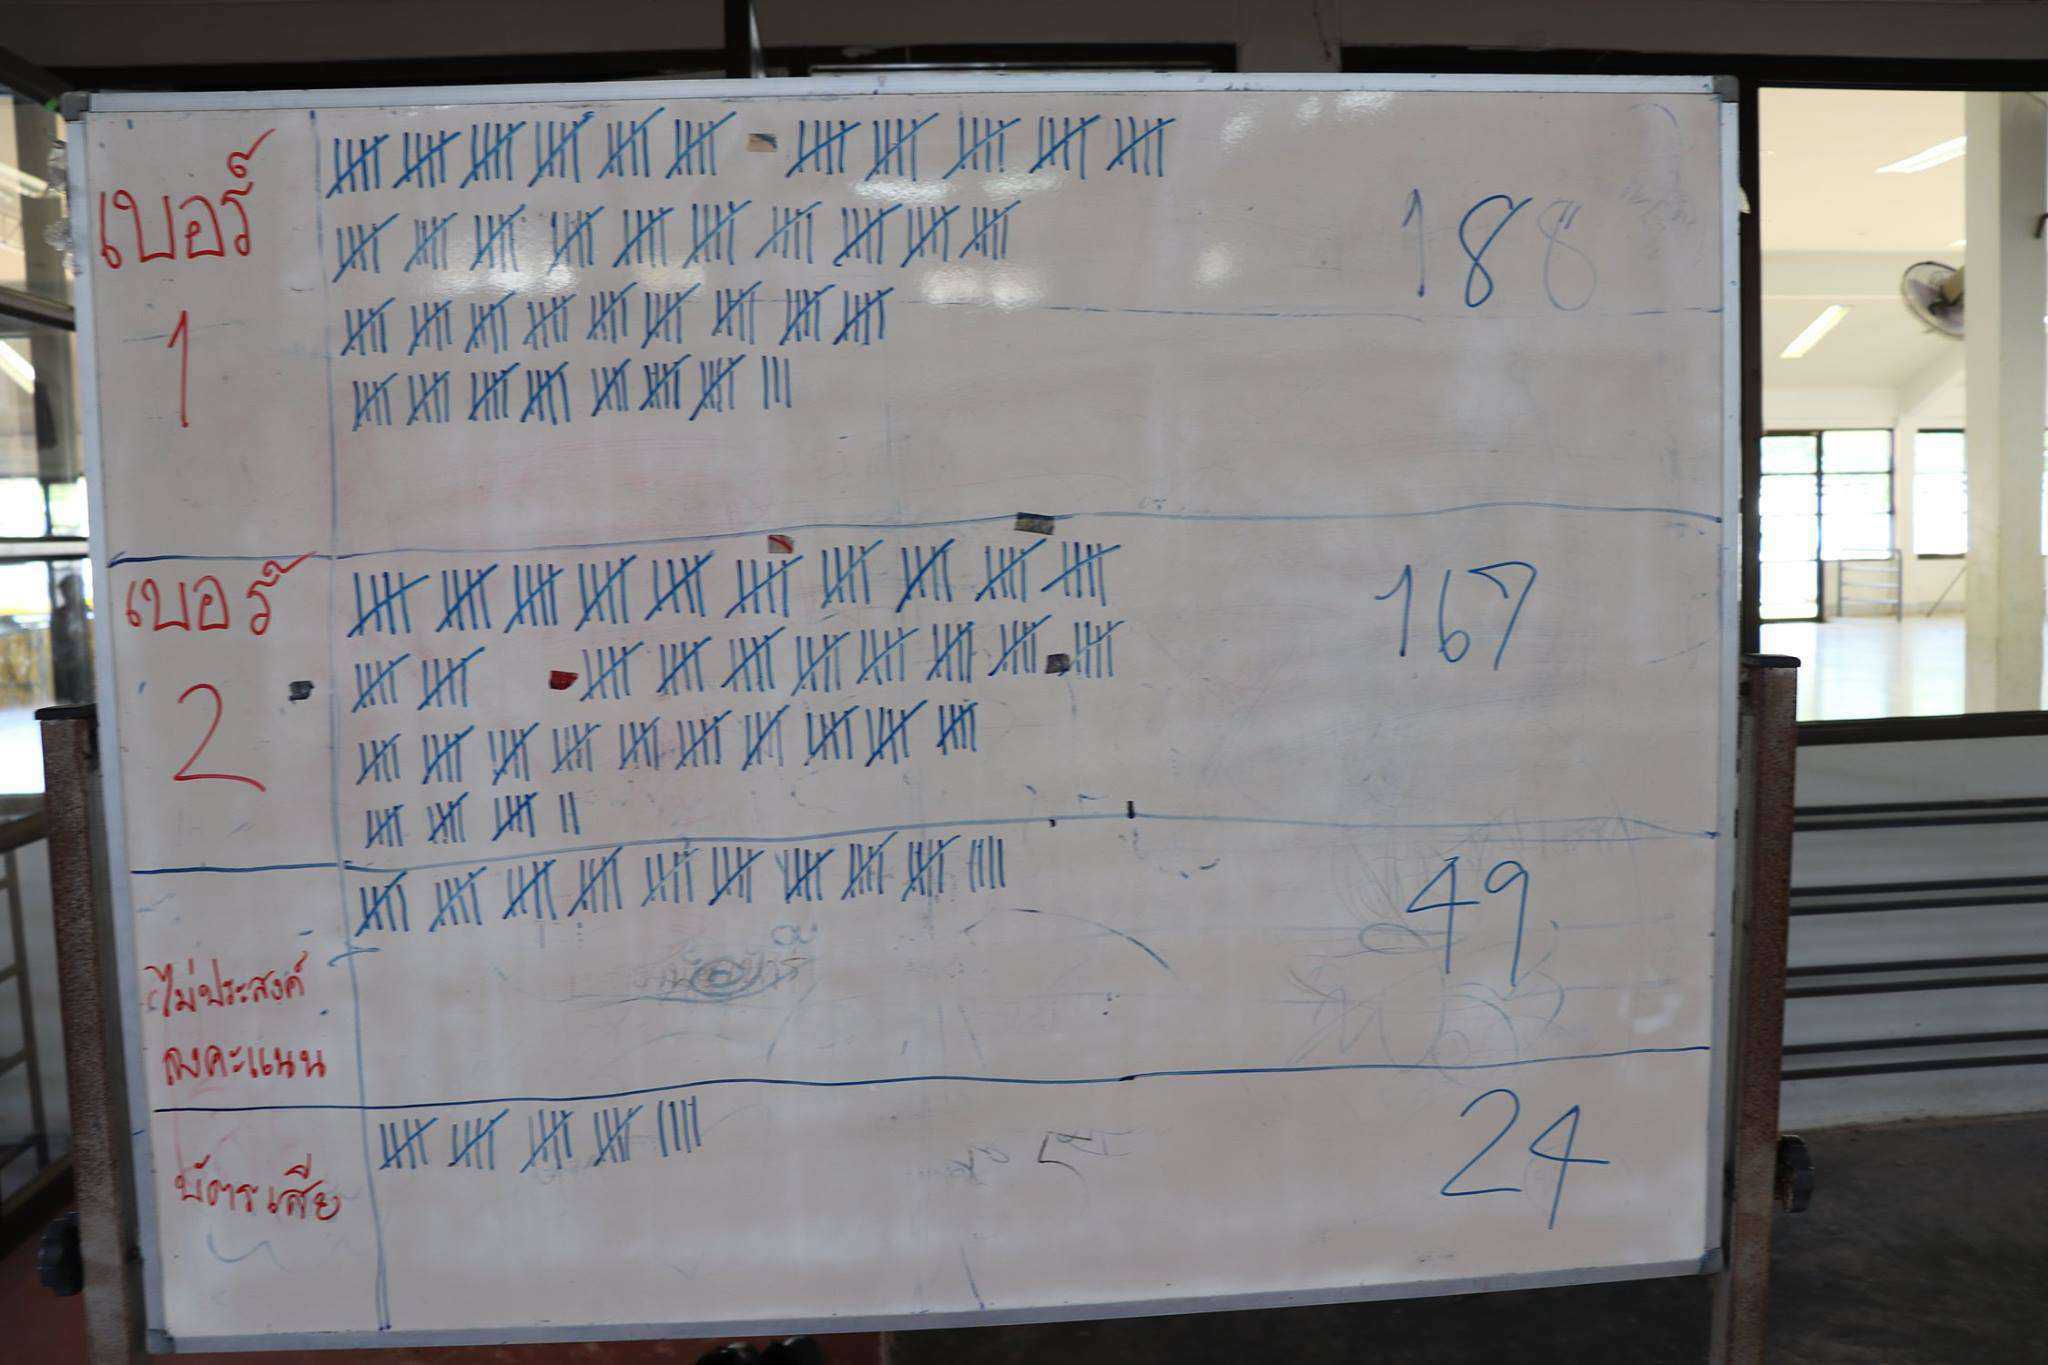 เบอร์
1
188
เบอร์
2
167
ไม่ประสงค์
ลงคะแนน
49
บัตรเสีย
24